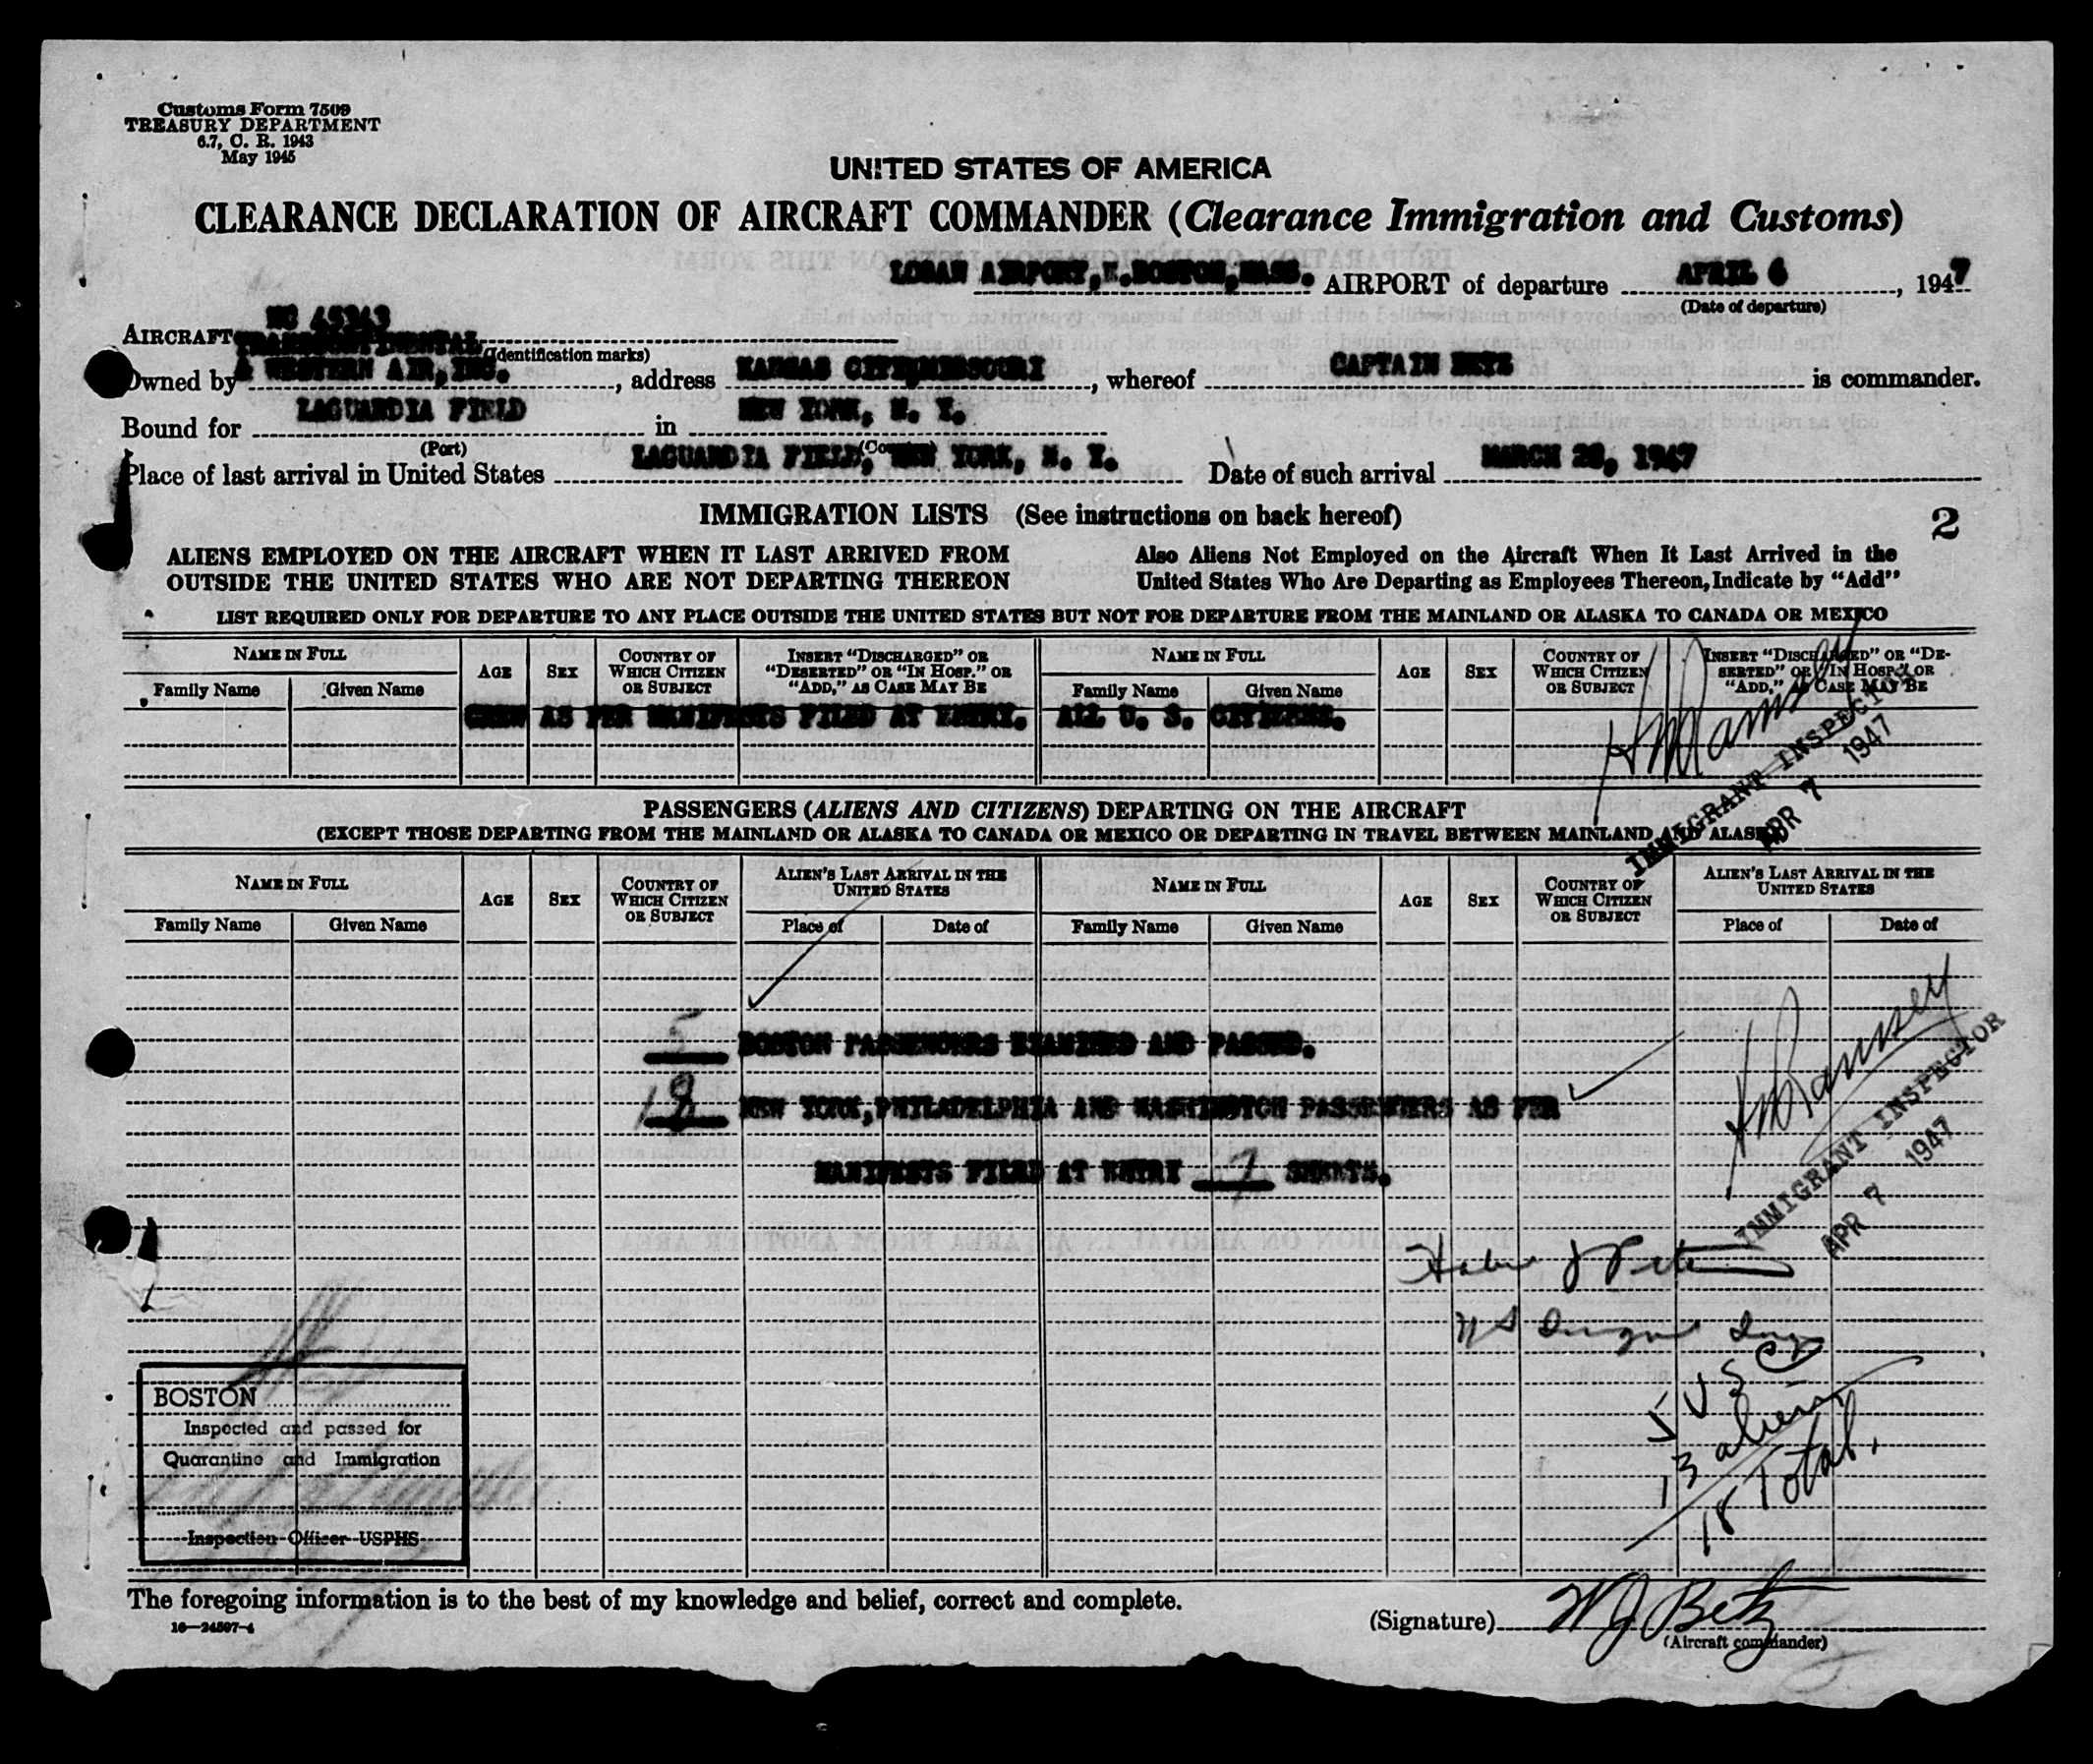 Customs Form 7509
TREASURY DEPARTMENT
6.7, C. R. 1943
May 1945
UNITED STATES OF AMERICA
CLEARANCE DECLARATION OF AIRCRAFT COMMANDER (Clearance Immigration and Customs)
LOGAN AIRPORT, E. BOSTON, MASS. AIRPORT of departure APRIL 6, 1947
(Date of departure)
NC 45343
AIRCRAFT
(Identification marks)
TRANSCONTINENTAL
Owned by & WESTERN AIR, INC., address KANSAS CITY, MISSOURI, whereof CAPTAIN BETZ is commander.
Bound for LAGUARDIA FIELD in NEW YORK, N. Y.
(Port)
Place of last arrival in United States LAGUARDIA FIELD, NEW YORK, N. Y. Date of such arrival MARCH 28, 1947
IMMIGRATION LISTS (See instructions on back hereof)
2
ALIENS EMPLOYED ON THE AIRCRAFT WHEN IT LAST ARRIVED FROM
OUTSIDE THE UNITED STATES WHO ARE NOT DEPARTING THEREON
Also Aliens Not Employed on the Aircraft When It Last Arrived in the
United States Who Are Departing as Employees Thereon, Indicate by "Add"
LIST REQUIRED ONLY FOR DEPARTURE TO ANY PLACE OUTSIDE THE UNITED STATES BUT NOT FOR DEPARTURE FROM THE MAINLAND OR ALASKA TO CANADA OR MEXICO
NAME IN FULL
Family Name Given Name
AGE
SEX
COUNTRY OF
WHICH CITIZEN
OR SUBJECT
INSERT "DISCHARGED" OR
"DESERTED" OR "IN HOSP." OR
"ADD," AS CASE MAY BE
NAME IN FULL
Family Name Given Name
AGE
SEX
COUNTRY OF
WHICH CITIZEN
OR SUBJECT
INSERT "DISCHARGED" OR "DE-
SERTED" OR "IN HOSP." OR
"ADD," AS CASE MAY BE
CREW AS PER MANIFESTS FILED AT ENTRY. ALL U. S. CITIZENS.
H Ramsey
IMMIGRANT INSPECTOR
APR 7 1947
PASSENGERS (ALIENS AND CITIZENS) DEPARTING ON THE AIRCRAFT
(EXCEPT THOSE DEPARTING FROM THE MAINLAND OR ALASKA TO CANADA OR MEXICO OR DEPARTING IN TRAVEL BETWEEN MAINLAND AND ALASKA)
NAME IN FULL
Family Name Given Name
AGE
SEX
COUNTRY OF
WHICH CITIZEN
OR SUBJECT
ALIEN'S LAST ARRIVAL IN THE
UNITED STATES
Place of Date of
NAME IN FULL
Family Name Given Name
AGE
SEX
COUNTRY OF
WHICH CITIZEN
OR SUBJECT
ALIEN'S LAST ARRIVAL IN THE
UNITED STATES
Place of Date of
5 BOSTON PASSENGERS EXAMINED AND PASSED.
18 NEW YORK, PHILADELPHIA AND WASHINGTON PASSENGERS AS PER
MANIFESTS FILED AT ENTRY 7 SHEETS.
Ramsey
IMMIGRANT INSPECTOR
APR 7 1947
5 USC
13 aliens
18 Total.
BOSTON
Inspected and passed for
Quarantine and Immigration
Inspection Officer USPHS
The foregoing information is to the best of my knowledge and belief, correct and complete.
16—24597-4
(Signature) W J Betz
(Aircraft commander)